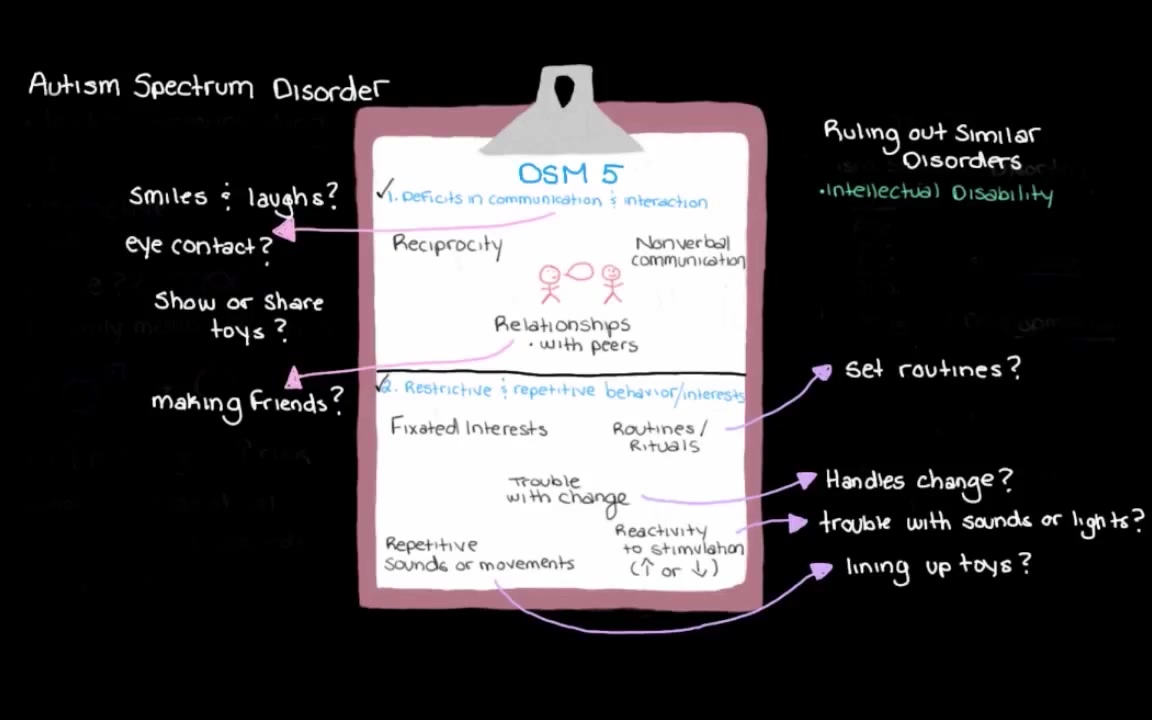 Autism Spectrum Disorder
smiles & laughs?
eye contact?
show or share
toys?
making friends?
DSM 5
✓1. Deficits in communication & interaction
Reciprocity
Nonverbal
communication
Relationships
• with peers
✓2. Restrictive & repetitive behavior/interests
Fixated Interests
Routines/
Rituals
Trouble
with change
Reactivity
to stimulation
(↑ or ↓)
Repetitive
sounds or movements
Ruling out Similar
Disorders
•Intellectual Disability
set routines?
Handles change?
trouble with sounds or lights?
lining up toys?